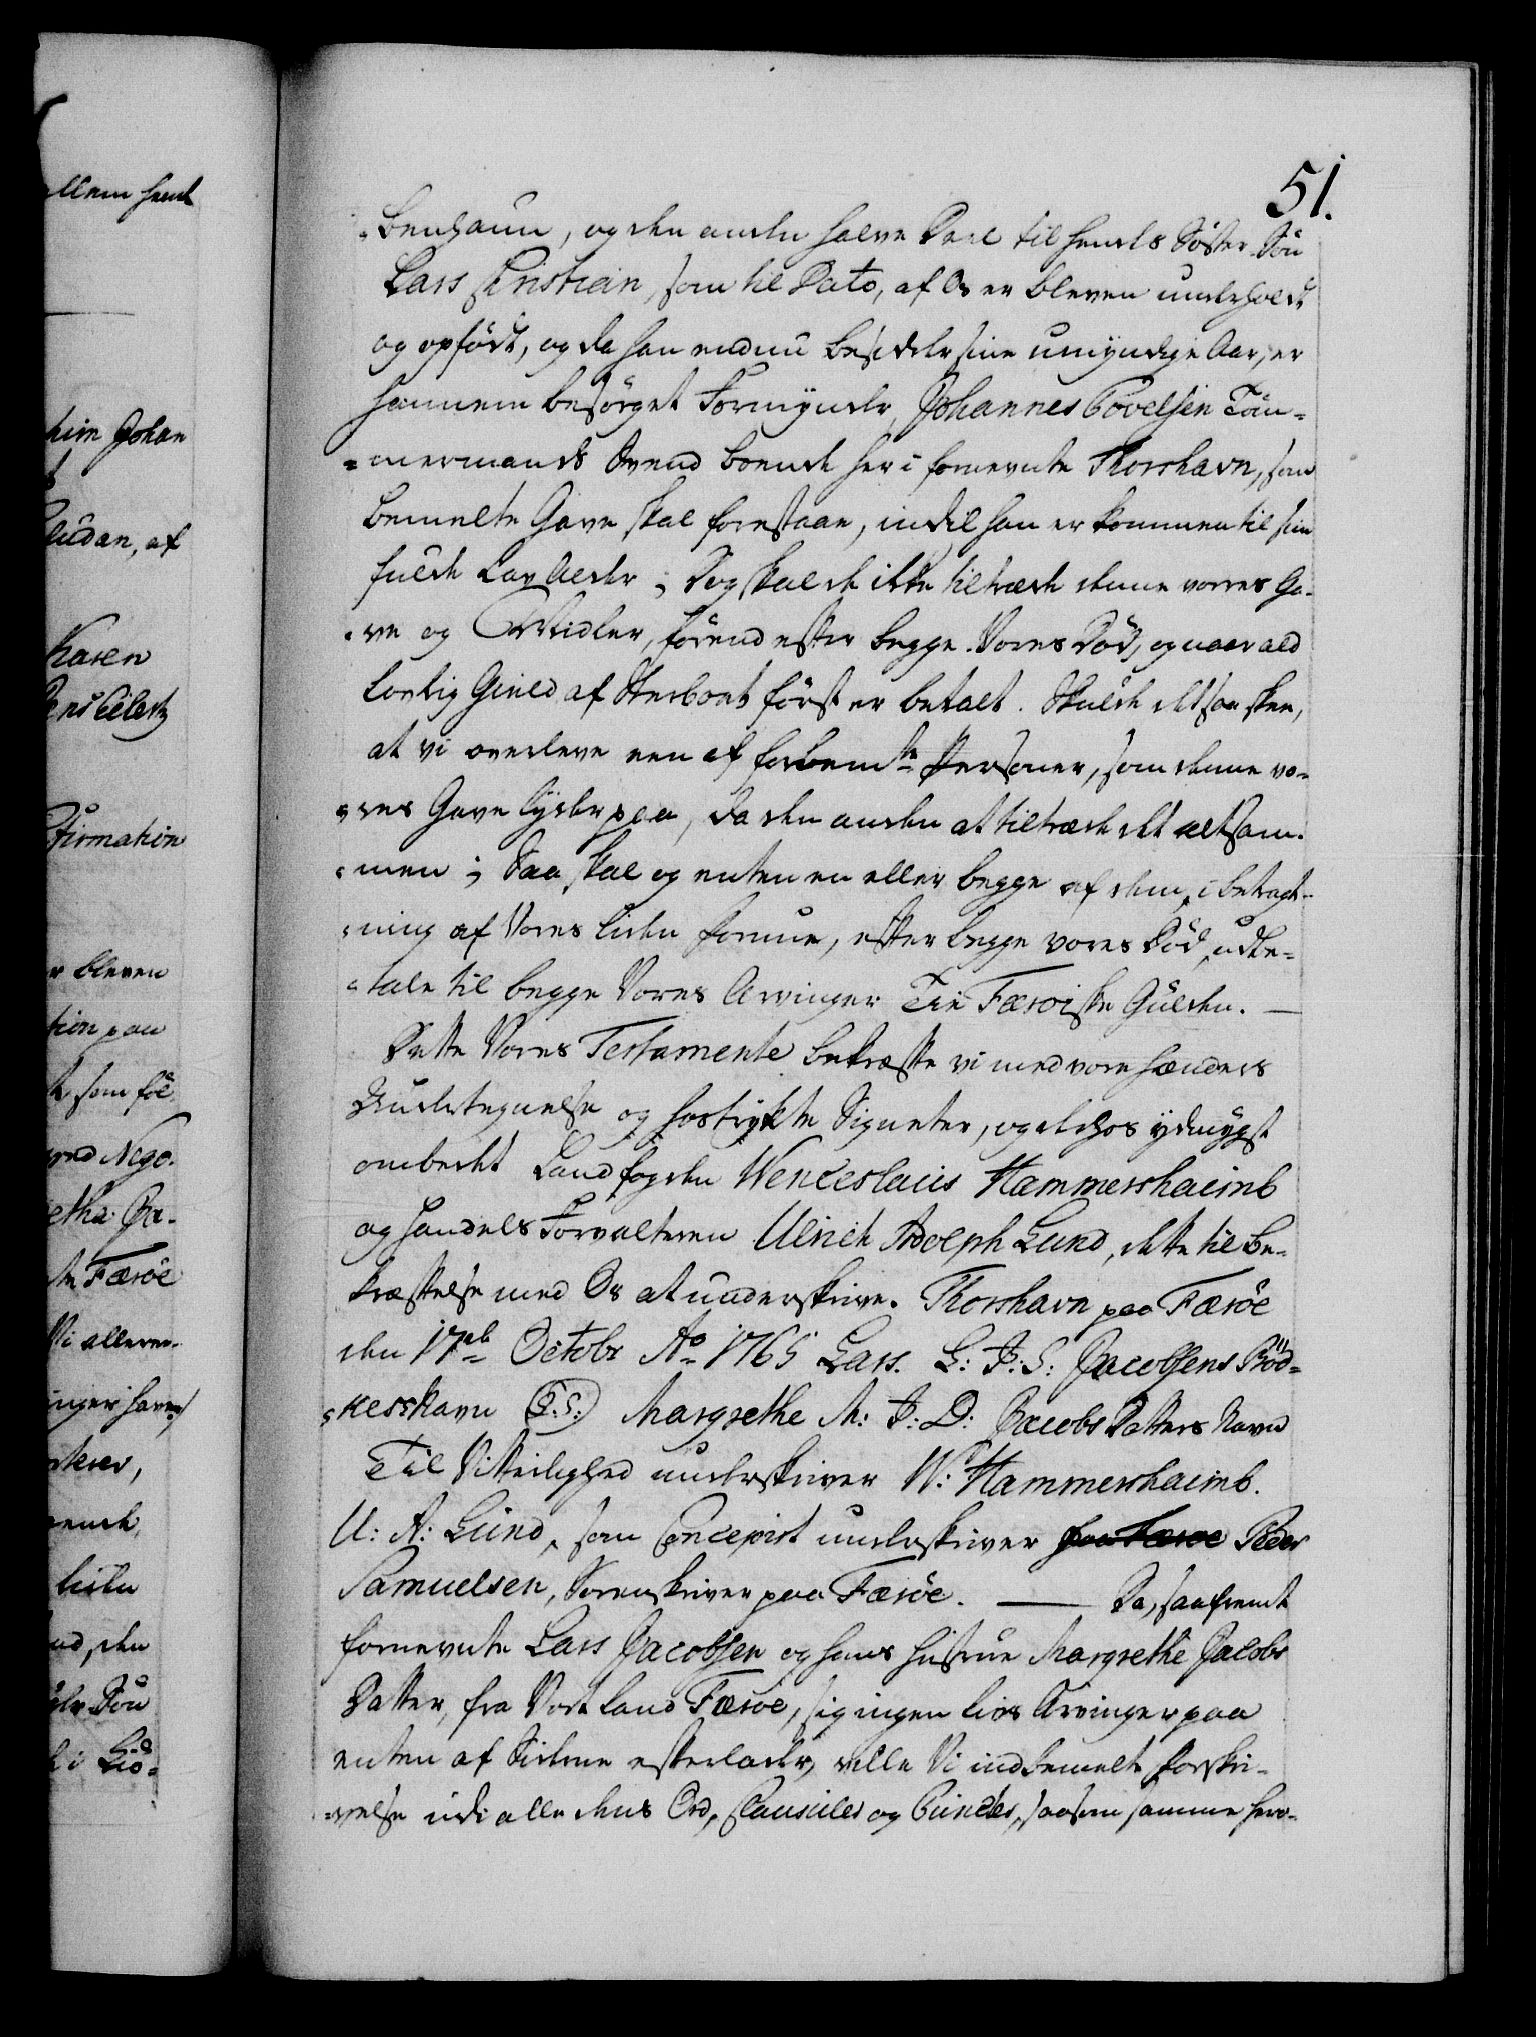 51.
-benhaun, og den anden halve Deel til hendes Söster Sön
Lars Christian, som til Dato, af Os er bleven underholdt
og opfödt, og da han endnu besidder sine umyndige Aar, er
hannem besörget Formynder, Johannes Povelsen Töm-
=mermands Svend boende her i fornevnte Thorshavn, som
bemelte Gave skal forestaae, indtil han er kommen til sin
fulde Lav Alder; Dog skal de ikke tiltræde denne vorres Ga-
-ve og Midler, förend efter begge Vores Död, og naar ald
Lovlig Gield af Sterboet först er betalt. Skulde det saa skee,
at vi overleve een af forbemte Personer, som denne vo-
-res Gave lyder paa, da den anden at tiltræde det altsam-
-men; Saa skal og enten en eller begge af dem, i betragt-
-ning af Vores liden formue, efter begge vores Död, udbe-
-tale til begge Vores Arvinger Tie Færöiske Gülden. —
Dette Vores Testamente bekræfte vi med vore hænders
Underteg­nelse og hostrykte Signeter, og derhos ydmygst
ombedet Landfogden Wenceslaus Hammershaimb
og Handels Forvalteren Ulrich Adolph Lund, dette til be-
kræftelse med Os at underskrive. Thorshavn paa Færöe
den 17de Octobr Ao 1765 Lars. L: J: S: Jacobsens Böd-
-kers Navn (L.S.) Margrethe M: J: D: Jacobs Datters Navn
Til Vitterlighed underskriver W: Hammershaimb.
U: A: Lund, som Concepist underskriver Peder
Samuelsen, Sorenskriver paa Færöe. — Da, saafremt
fornevnte Lars Jacobsen og hans hustrue Margrethe Jacobs
Datter, fra Vort Land Færöe, sig ingen livs Arvinger paa
enten af Siderne efterlader, ville Vi indbemelte forskri-
-velse udi alle dens Ord, Clausuler og Puncter, saasom samme herv-